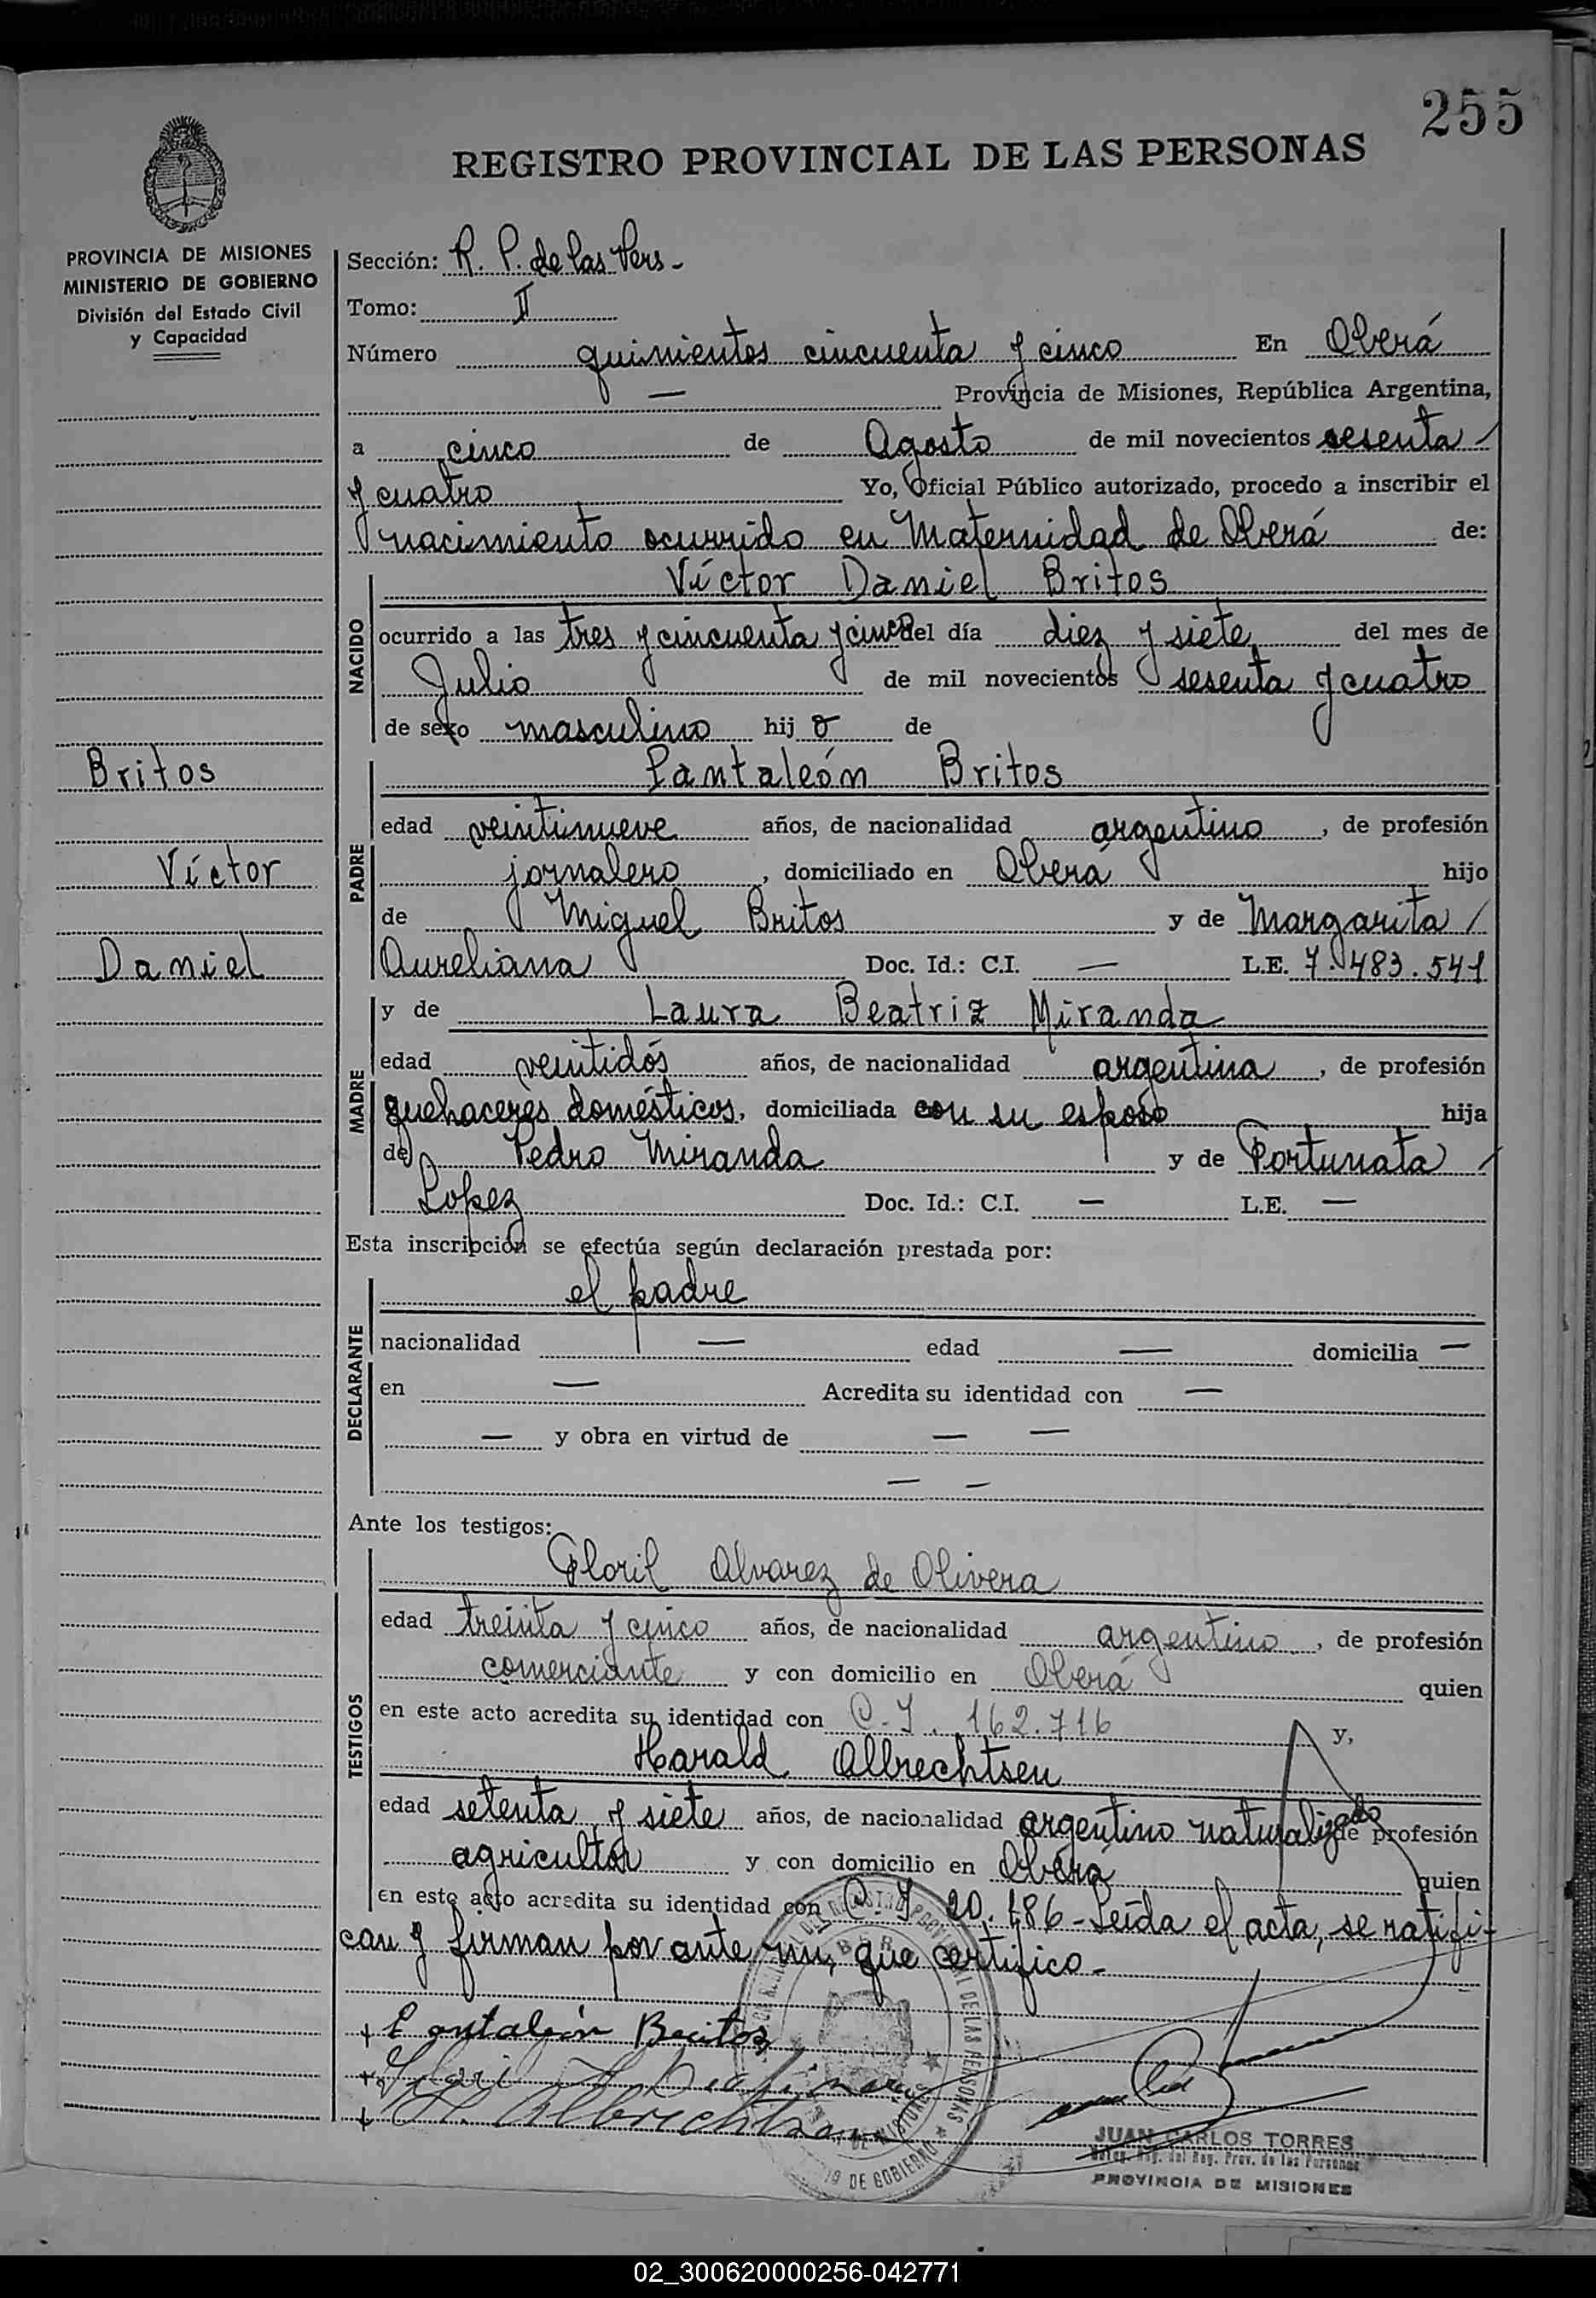 255
REGISTRO PROVINCIAL DE LAS PERSONAS
PROVINCIA DE MISIONES
MINISTERIO DE GOBIERNO
División del Estado Civil
y Capacidad
Sección: R. P. de las Pers -
Tomo: II
Número quinientos cincuenta y cinco En Oberá
— Provincia de Misiones, República Argentina,
a cinco de Agosto de mil novecientos sesenta /
y cuatro Yo, Oficial Público autorizado, procedo a inscribir el
nacimiento ocurrido en Maternidad de Oberá de:
NACIDO
Víctor Daniel Britos
ocurrido a las tres y cincuenta y cinco del día diez y siete del mes de
Julio de mil novecientos sesenta y cuatro
de sexo masculino hij o de
Britos
Víctor
Daniel
PADRE
Pantaleón Britos
edad veintinueve años, de nacionalidad argentino, de profesión
jornalero, domiciliado en Oberá hijo
de Miguel Britos y de Margarita /
Aureliana Doc. Id.: C.I. — L.E. 7.483.541
MADRE
y de Laura Beatriz Miranda
edad veintidós años, de nacionalidad argentina, de profesión
quehaceres domésticos, domiciliada con su esposo hija
de Pedro Miranda y de Fortunata /
Lopez Doc. Id.: C.I. — L.E. —
Esta inscripción se efectúa según declaración prestada por:
DECLARANTE
el padre
nacionalidad — edad — domicilia —
en — Acredita su identidad con —
— y obra en virtud de — —
— —
Ante los testigos:
TESTIGOS
Floril Alvarez de Olivera
edad treinta y cinco años, de nacionalidad argentino, de profesión
comerciante y con domicilio en Oberá quien
en este acto acredita su identidad con C.I. 162.716 y,
Harald Albrechtsen
edad setenta y siete años, de nacionalidad argentino naturalizado de profesión
agricultor y con domicilio en Oberá quien
en este acto acredita su identidad con C.I 20.186 - Leída el acta, se ratifi-
can y firman por ante mí, que certifico -
+ Pantaleón Britos
+ H. Albrechtsen
DE GOBIERNO
JUAN CARLOS TORRES
Reg. del Reg. Prov. de las Personas
PROVINCIA DE MISIONES
02_300620000256-042771